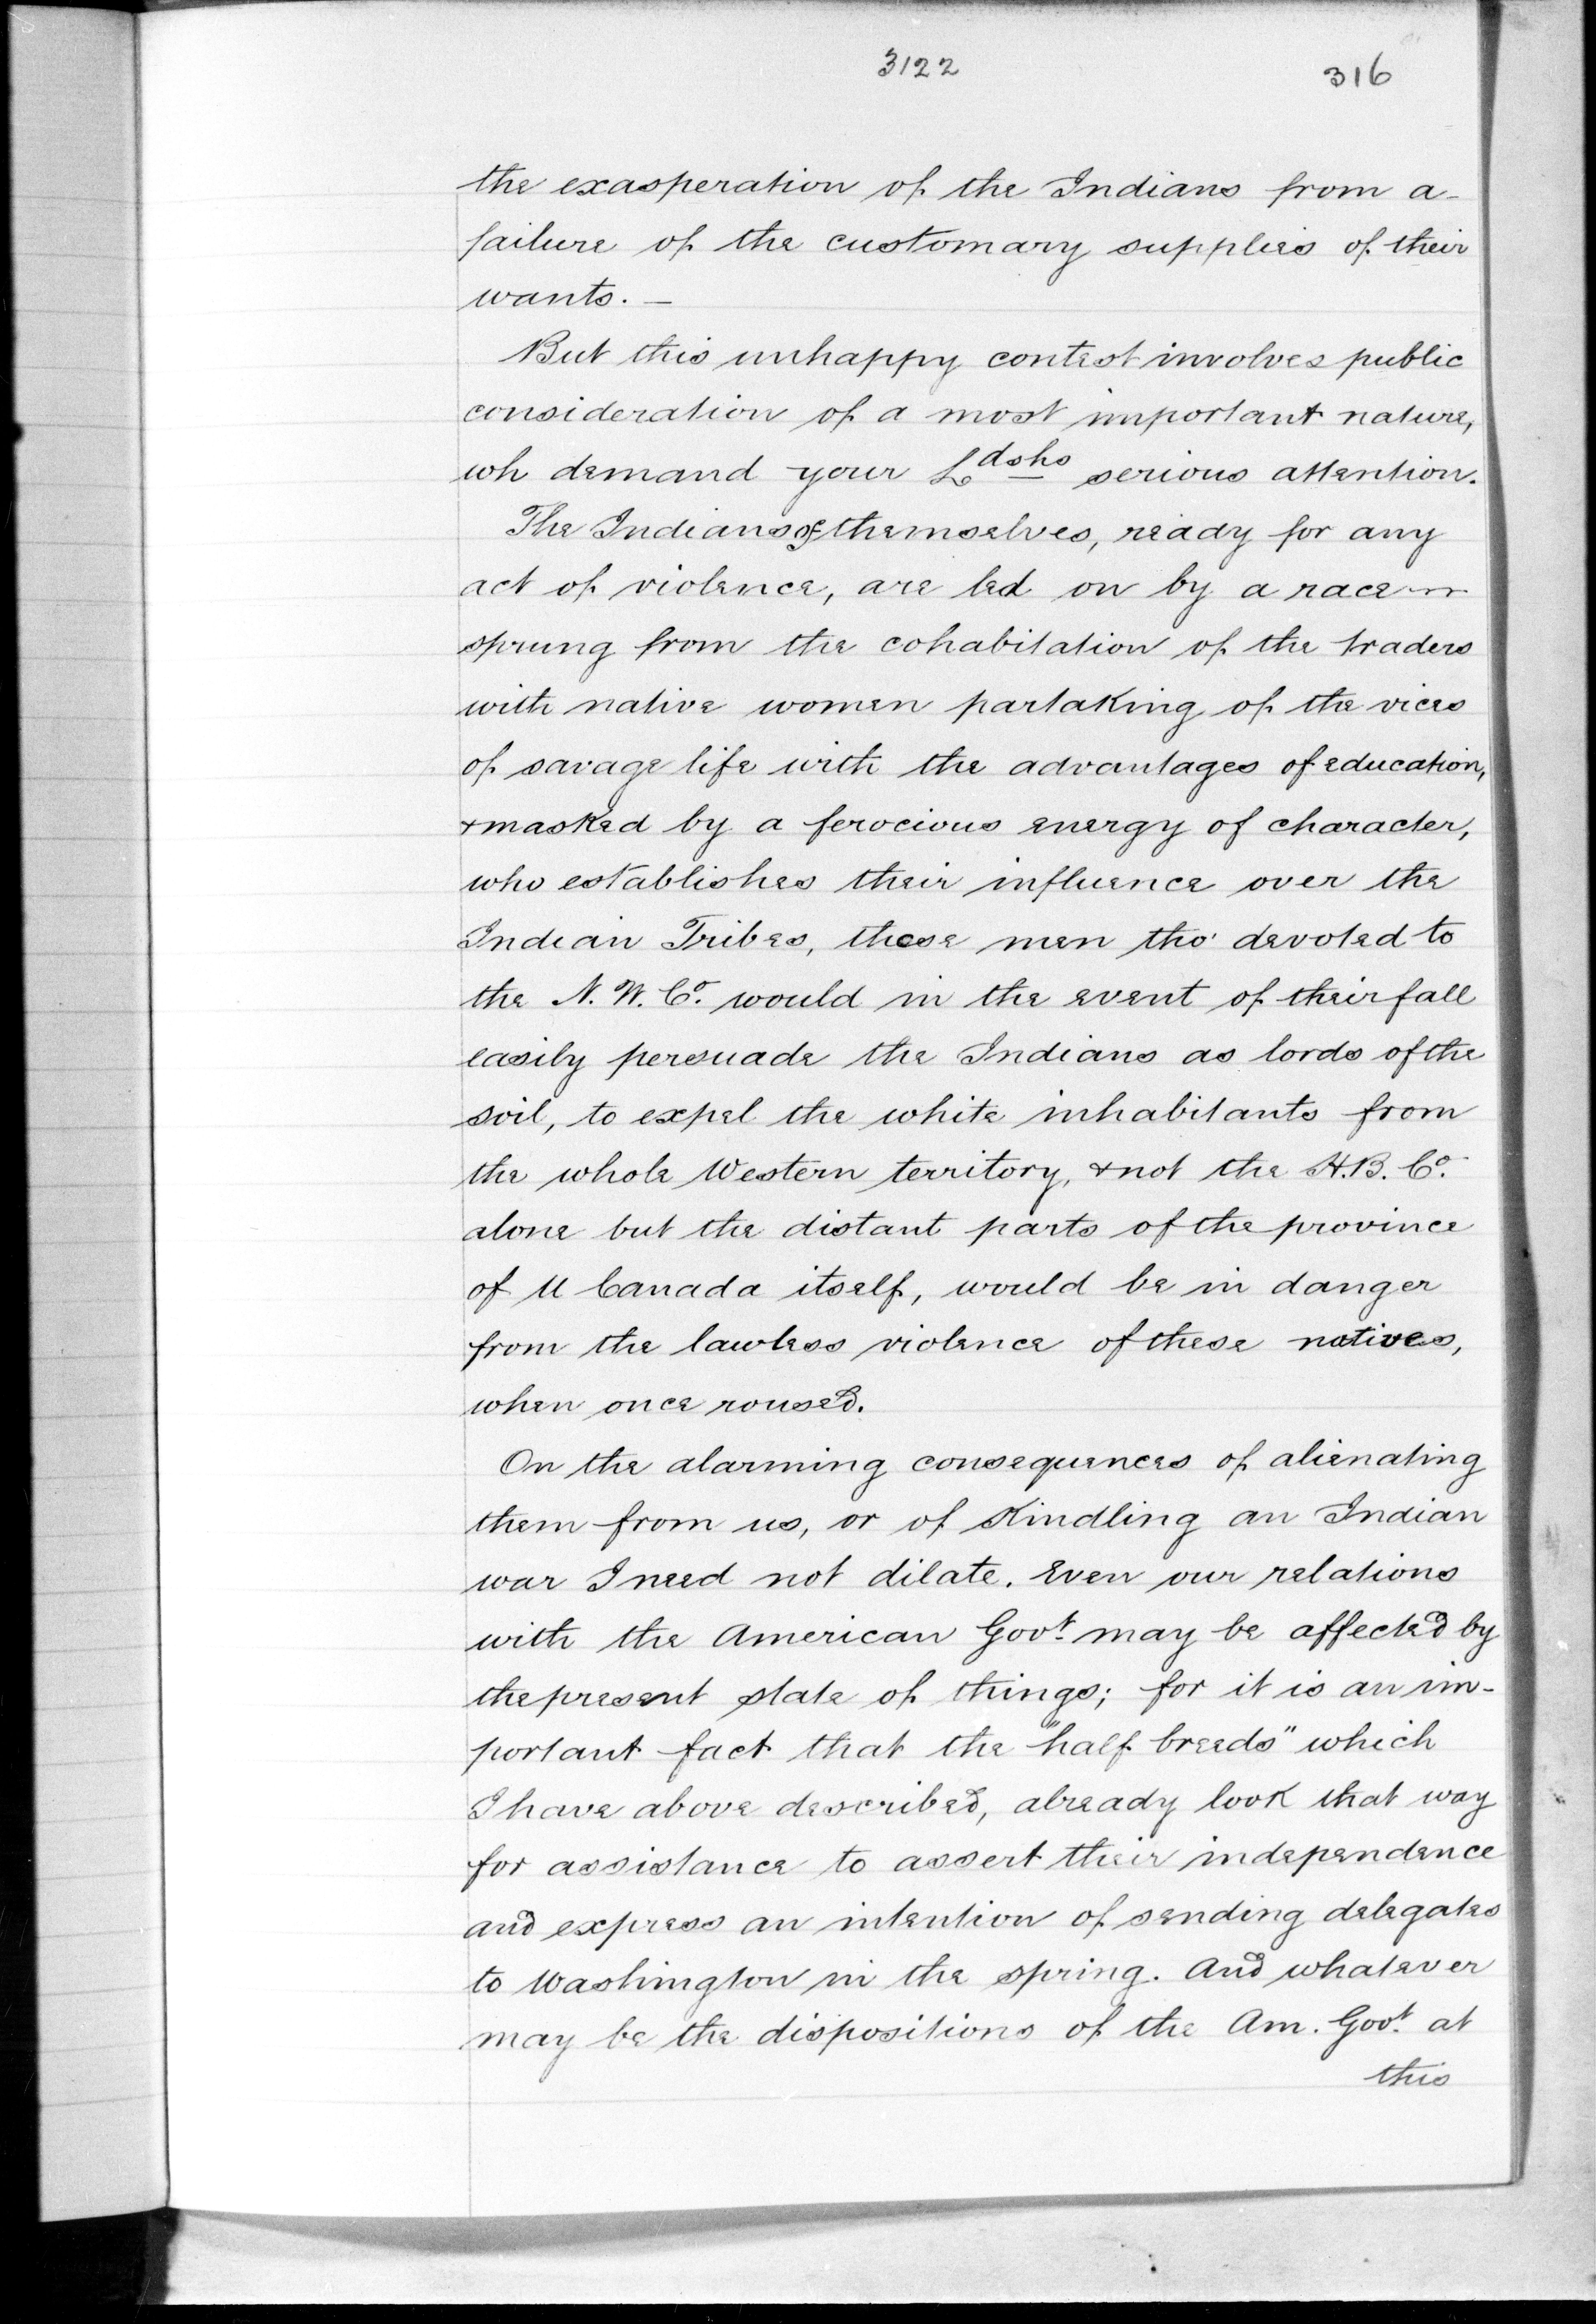 3122 316
the exasperation of the Indians from a-
failure of the customary supplies of their
wants. —
But this unhappy contest involves public
consideration of a most important nature,
wh demand your Ldshs serious attention.
The Indians of themselves, ready for any
act of violence, are led on by a race
sprung from the cohabitation of the traders
with native women partaking of the vices
of savage life with the advantages of education,
& masked by a ferocious energy of character,
who establishes their influence over the
Indian Tribes, these men tho' devoted to
the N. W. Co. would in the event of their fall
easily persuade the Indians as lords of the
soil, to expel the white inhabitants from
the whole Western territory, & not the H.B. Co.
alone but the distant parts of the province
of U Canada itself, would be in danger
from the lawless violence of these natives,
when once roused.
On the alarming consequences of alienating
them from us, or of Kindling an Indian
war I need not dilate. Even our relations
with the American Govt. may be affected by
the present state of things; for it is an im-
portant fact that the "half breeds" which
I have above described, already look that way
for assistance to assert their independence
and express an intention of sending delegates
to Washington in the spring. And whatever
may be the dispositions of the Am. Govt. at
this